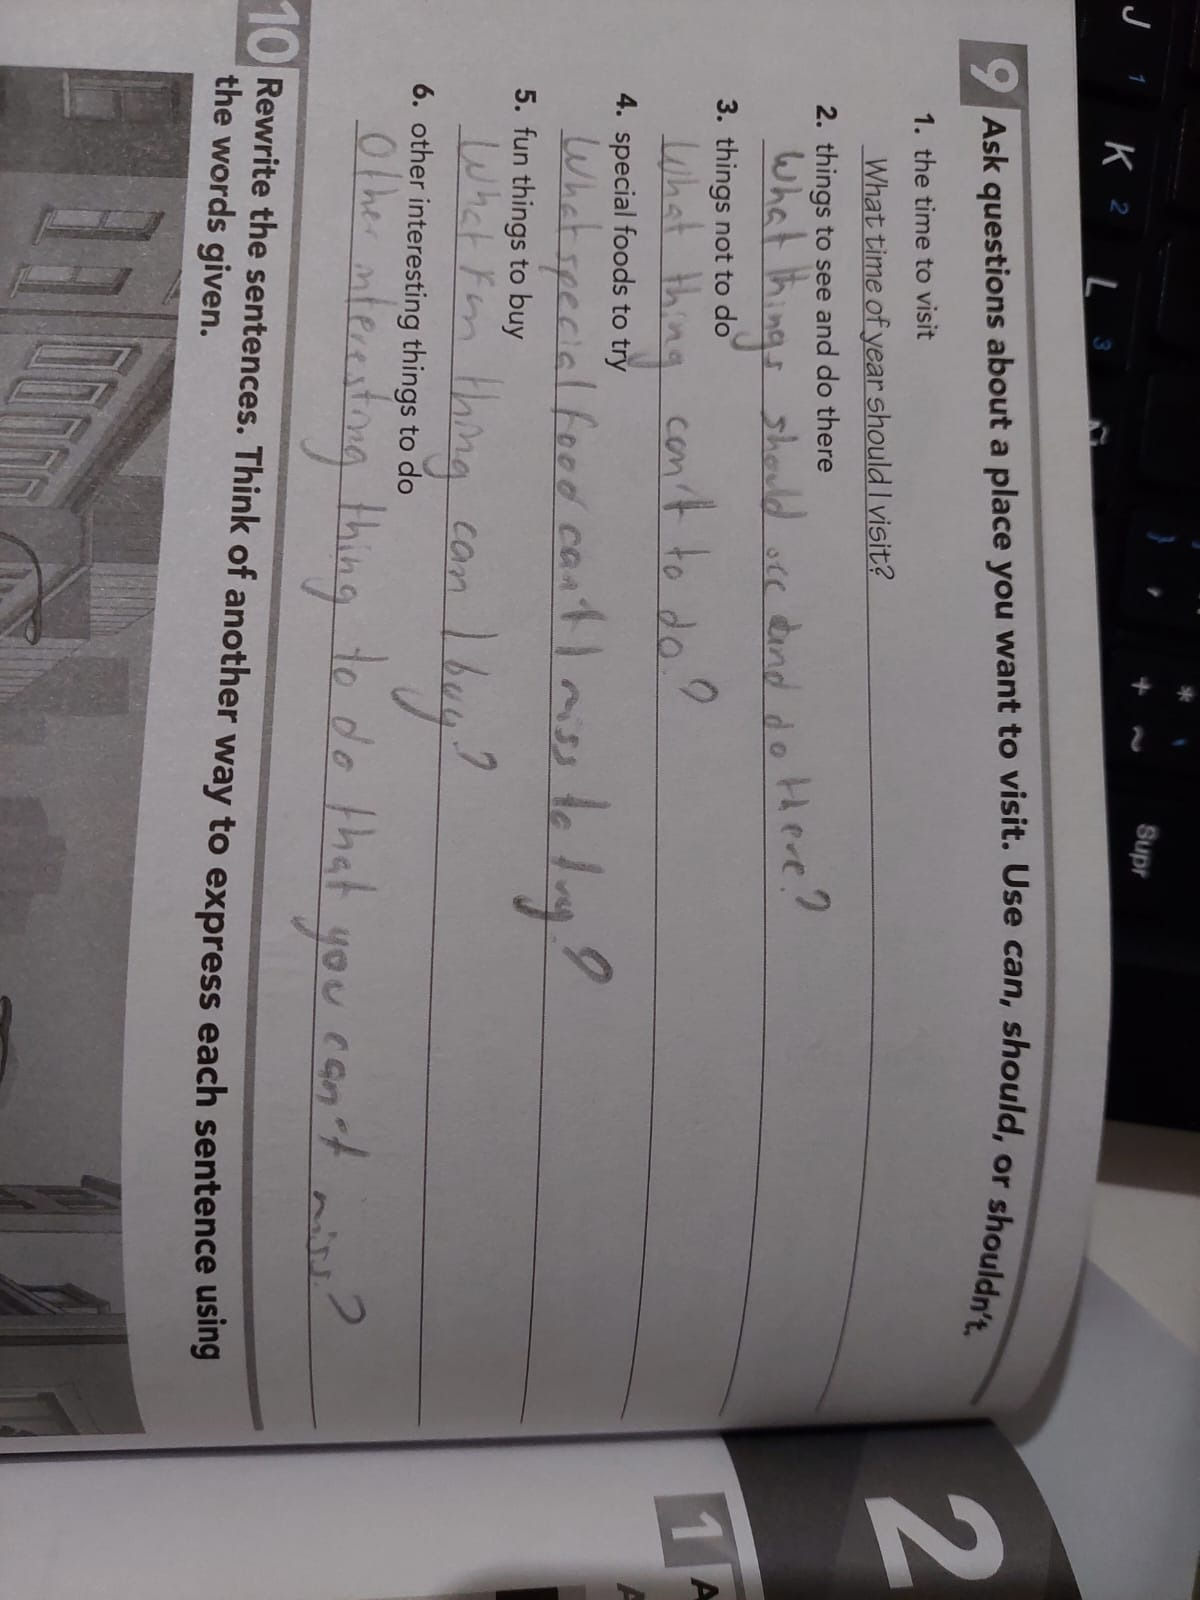 9 Ask questions about a place you want to visit. Use can, should, or shouldn't.
1. the time to visit
What time of year should I visit?
2. things to see and do there
What things should see and do there?
3. things not to do
What thing can't to do?
4. special foods to try
What special food can't I miss to try?
5. fun things to buy
What Fun thing can I buy?
6. other interesting things to do
Other interesting thing to do that you can't miss?
10 Rewrite the sentences. Think of another way to express each sentence using
the words given.
2
1 A
A
J 1 K 2 L 3 Ñ
} , + ~ Supr
* '